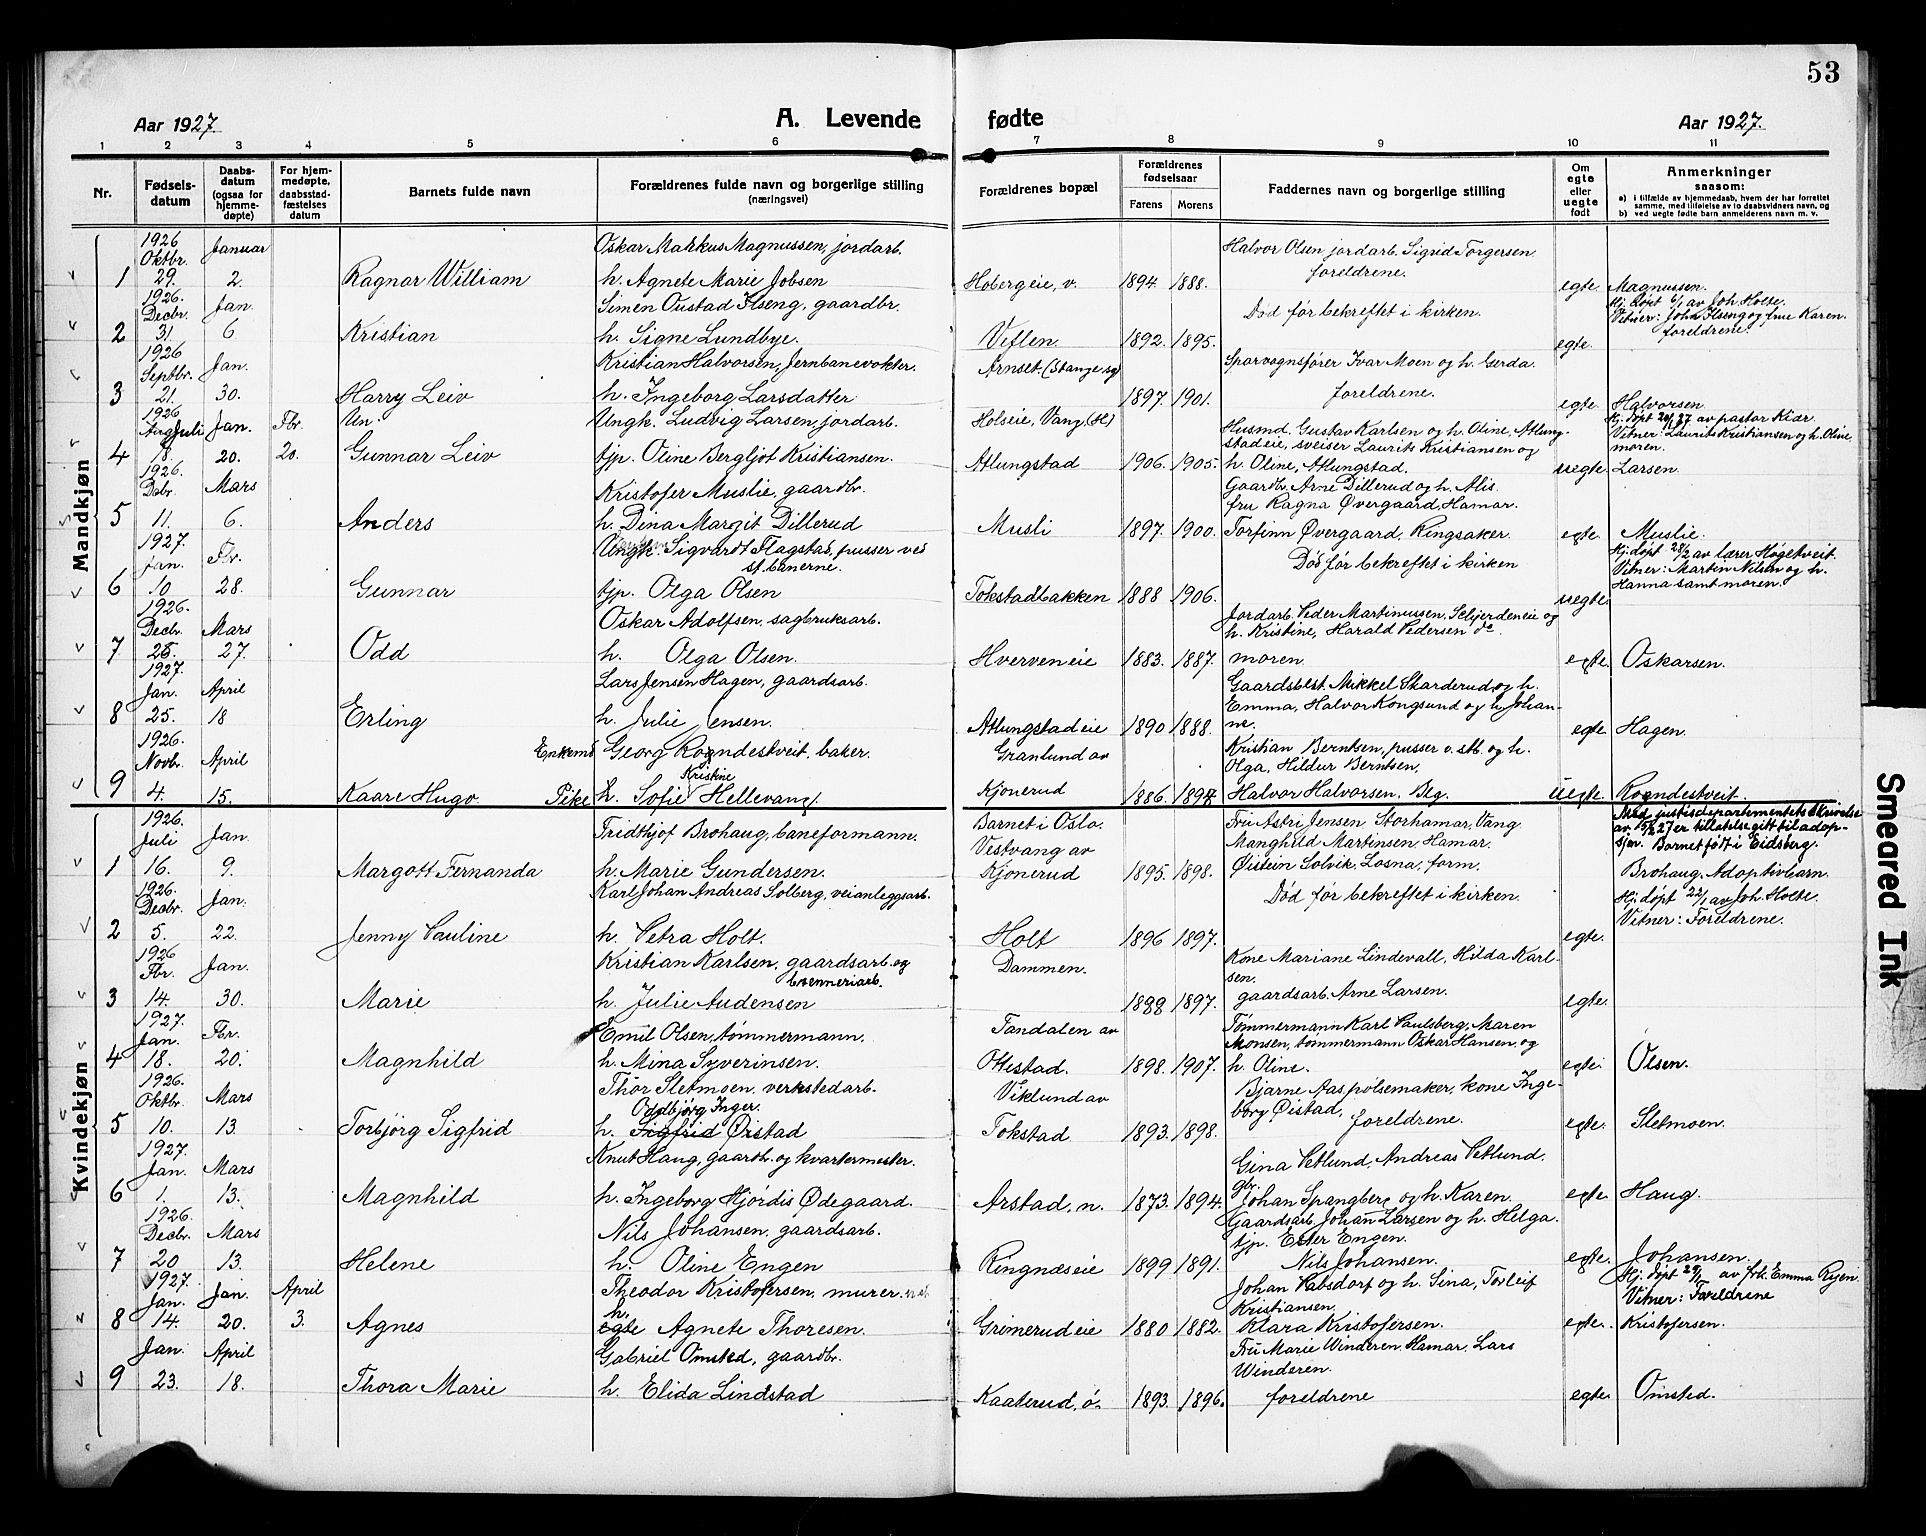 53
Aar 1927.
A. Levende
fødte
Aar 1927.
1 2 3 4 5 6 7 8 9 10 11
Nr.
Fødsels-
datum
Daabs-
datum
(ogsaa for
hjemme-
døpte)
For hjem-
medøpte,
daabsstad-
fæstelses
datum
Barnets fulde navn
Forældrenes fulde navn og borgerlige stilling
(næringsvei)
Forældrenes bopæl
Forældrenes
fødselsaar
Farens
Morens
Faddernes navn og borgerlige stilling
Om
egte
eller
uegte
født
Anmerkninger
saasom:
a) i tilfælde av hjemmedaab, hvem der har forrettet
samme, med tilføielse av to daabsvidners navn, og
b) ved uegte fødte barn anmelderens navn m. v.
Mandkjøn
1926 Januar Oskar Markus Magnussen, jordarb. Halvor Olsen jordarb. Sigrid Torgersen
Oktbr. foreldrene.
1 29. 2. Ragnar William h. Agnete Marie Jobsen Hobergeie, v. 1894 1888. egte. Magnussen.
1926. Jan. Simen Oustad Ilseng, gaardbr. Død før bekreftet i kirken. Hj. døpt 6/1 av Joh. Holte.
Decbr. Vitner: Johs Ilseng og frue Karen.
2 31. 6 Kristian h. Signe Lundbye. Veflen. 1892. 1895. egte. foreldrene.
1926 Jan. Kristian Halvorsen, Jernbanevokter. Arnset. (Stange sg) Sporvognsfører Ivar Moen og h. Gerda.
Septbr.
3 21. 30. Harry Leiv h. Ingeborg Larsdatter 1897 1901. foreldrene. egte. Halvorsen
1926 Juli Jan. Fbr. Un. Ungk. Ludvig Larsen, jordarb. Holseie, Vang, (H) Husmd. Gustav Karlsen og h. Oline, Atlung- Hj. døpt 20/1 27 av pastor Kiær
stadeie, sveiser Laurits Kristiansen og Vitner: Laurits Kristiansen og h. Oline,
4 18. 20. 20. Gunnar Leiv tjp. Oline Bergljot Kristiansen. Atlungstad 1906. 1905. h. Oline, Atlungstad. uegte. moren.
Larsen.
1926. Mars Kristofer Muslie, gaardbr. Gaardbr. Arne Dillerud og h. Alis.
Dcbr. fru Ragna Øvergaard, Hamar.
5 11. 6. Anders h. Dina Margit Dillerud Musli 1897 1900. Torfinn Øvergaard, Ringsaker. egte. Muslie.
1927. Fbr. Ungk. Sigvardt Flagstad, pusser ved Død før bekreftet i kirken Hj. døpt 28/2 av lærer Høgetveit.
Jan. st. banerne. Vitner: Martin Nilsen og h.
6 10 28. Gunnar tjp. Olga Olsen Tokstadbakken 1888 1906. uegte. Hanna samt moren.
1926. Mars Oskar Adolfsen, sagbruksarb. Jordarb. Peder Martinussen, Seljerdeneie og
Decbr. h. Kristine, Harald Pedersen do.
7 26. 27. Odd h. Olga Olsen. Hverveneie 1883. 1887. moren. egte. Oskarsen.
1927. April Lars Jensen Hagen, gaardsarb. Gaardsbest. Mikkel Skarderud og h.
Jan. Emma, Halvor Kongsund og h. Johan-
8 25. 18 Erling h. Julie Jensen. Atlungstadeie 1890 1888. ne. egte Hagen.
1926. April Enkemd Georg Rogndestveit, baker. Granlund av Kristian Berntsen, pusser v. stb. og h.
Novbr. Kristine Olga, Hildur Berntsen,
9 4. 15. Kaare Hugo. Pike h. Sofie Hellevang. Kjonerud 1886. 1894 Halvor Halvorsen, Beg. Uegte. Rogndestveit.
Kvindekjøn
1926. Jan. Fridthjof Brohaug, baneformann. Barnet i Oslo. Fru Astri Jensen, Storhamar, Vang Med justisdepartementets skrivelse
Juli Vestvang av Manghild Martinsen, Hamar. av 15/2 27 er tillatelse gitt til adop-
sjon. Barnet født i Eidsberg.
1 16. 9. Margott Fernanda h. Marie Gundersen. Kjonerud 1895. 1898. Øistein Solvik, Losna, form. Brohaug. Adoptivbarn.
1926. Jan. Karl Johan Andreas Solberg, veianleggsarb. Død før bekreftet i kirken. Hj. døpt 22/1 av Joh. Holte.
Decbr. Vitner: Foreldrene.
2 5. 22. Jenny Pauline h. Petra Holt. Holt 1896 1897. egte.
1926 Jan. Kristian Karlsen, gaardsarb. og Dammen. Kone Mariane Lindevall, Hilda Karl-
Fbr. brenneriarb. sen.
3 14. 30. Marie h. Julie Audensen 1888 1897. gaardsarb. Arne Larsen. egte.
1927. Fbr. Emil Olsen, tømmermann. Tandalen av Tømmermann Karl Paulsberg, Maren
Jan. Monsen, tømmermann Oskar Hansen, og
4 18. 20. Magnhild h. Mina Syverinsen. Ottestad. 1898. 1907. h. Oline. egte. Olsen.
1926. Mars Thor Sletmoen, verkstedarb. Viklund av Bjarne Aas, pølsemaker, kone Inge-
Oktbr. Oddbjørg Inger. borg Øistad,
5 10. 13. Torbjörg Sigfrid h. Sigfrid Øistad Tokstad 1893. 1898. foreldrene. egte. Sletmoen.
1927. Mars Knut Haug, gaardbr. og kvartermester. Gina Vetlund, Andreas Vetlund.
Jan. gbr.
6 1. 13. Magnhild h. Ingeborg Hjördis Ødegaard. Arstad, n. 1873. 1894. Johan Spangberg og h. Karen. egte. Haug.
1926. Mars Nils Johansen, gaardsarb. Gaardsarb. Johan Larsen og h. Helga.
Decbr. tjp. Ester Engen.
7 20 13. Helene h. Oline Engen Ringnæseie 1899 1891. Nils Johansen. egte. Johansen.
1927. Jan. April Theodor Kristofersen, murer. Johan Vatsdorf og h. Sina, Torleif Hj. døpt 20/1 av frk. Emma Ryen
Jan. h. Kristiansen. Vitner: Foreldrene
8 14. 20. 3. Agnes egte Agnete Thoresen. Grimerudeie 1880 1882. Klara Kristofersen. egte. Kristofersen.
Jan. April Gabriel Omsted, gaardbr. Fru Marie Winderen, Hamar, Lars
Winderen.
9 23. 18. Thora Marie h. Elida Lindstad Kaaterud, ø. 1893. 1896. foreldrene egte. Omsted.
Smeared Ink